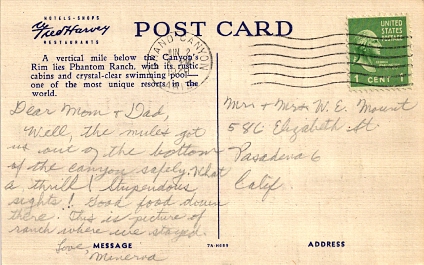 HOTELS · SHOPS
Fred Harvey
RESTAURANTS
POST CARD
A vertical mile below the Canyon's
Rim lies Phantom Ranch, with its rustic
cabins and crystal-clear swimming pool—
one of the most unique resorts in the
world.
GRAND CANYON
JUN 2
UNITED
STATES
POSTAGE
1 CENT 1
Dear Mom & Dad,
Well, the mules got
us out of the bottom
of the canyon safely. What
a thrill! Stupendous
sights! Good food down
there. This is picture of
ranch where we stayed.
Love,
Minerva
Mr. & Mrs. W. E. Mount
586 Elizabeth St
Pasadena 6
Calif.
MESSAGE
7A-H699
ADDRESS